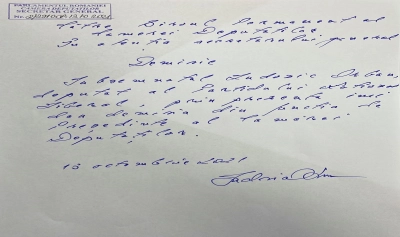 PARLAMENTUL ROMÂNIEI
CAMERA DEPUTAȚILOR
SECRETAR GENERAL
Către Biroul Permanent al
Camerei Deputaților
În atenția secretarului general
Demisie
Subsemnatul Ludovic Orban,
deputat al Partidului Național
Liberal, prin prezenta îmi
dau demisia din funcția de
Președinte al Camerei
Deputaților.
13 octombrie 2021